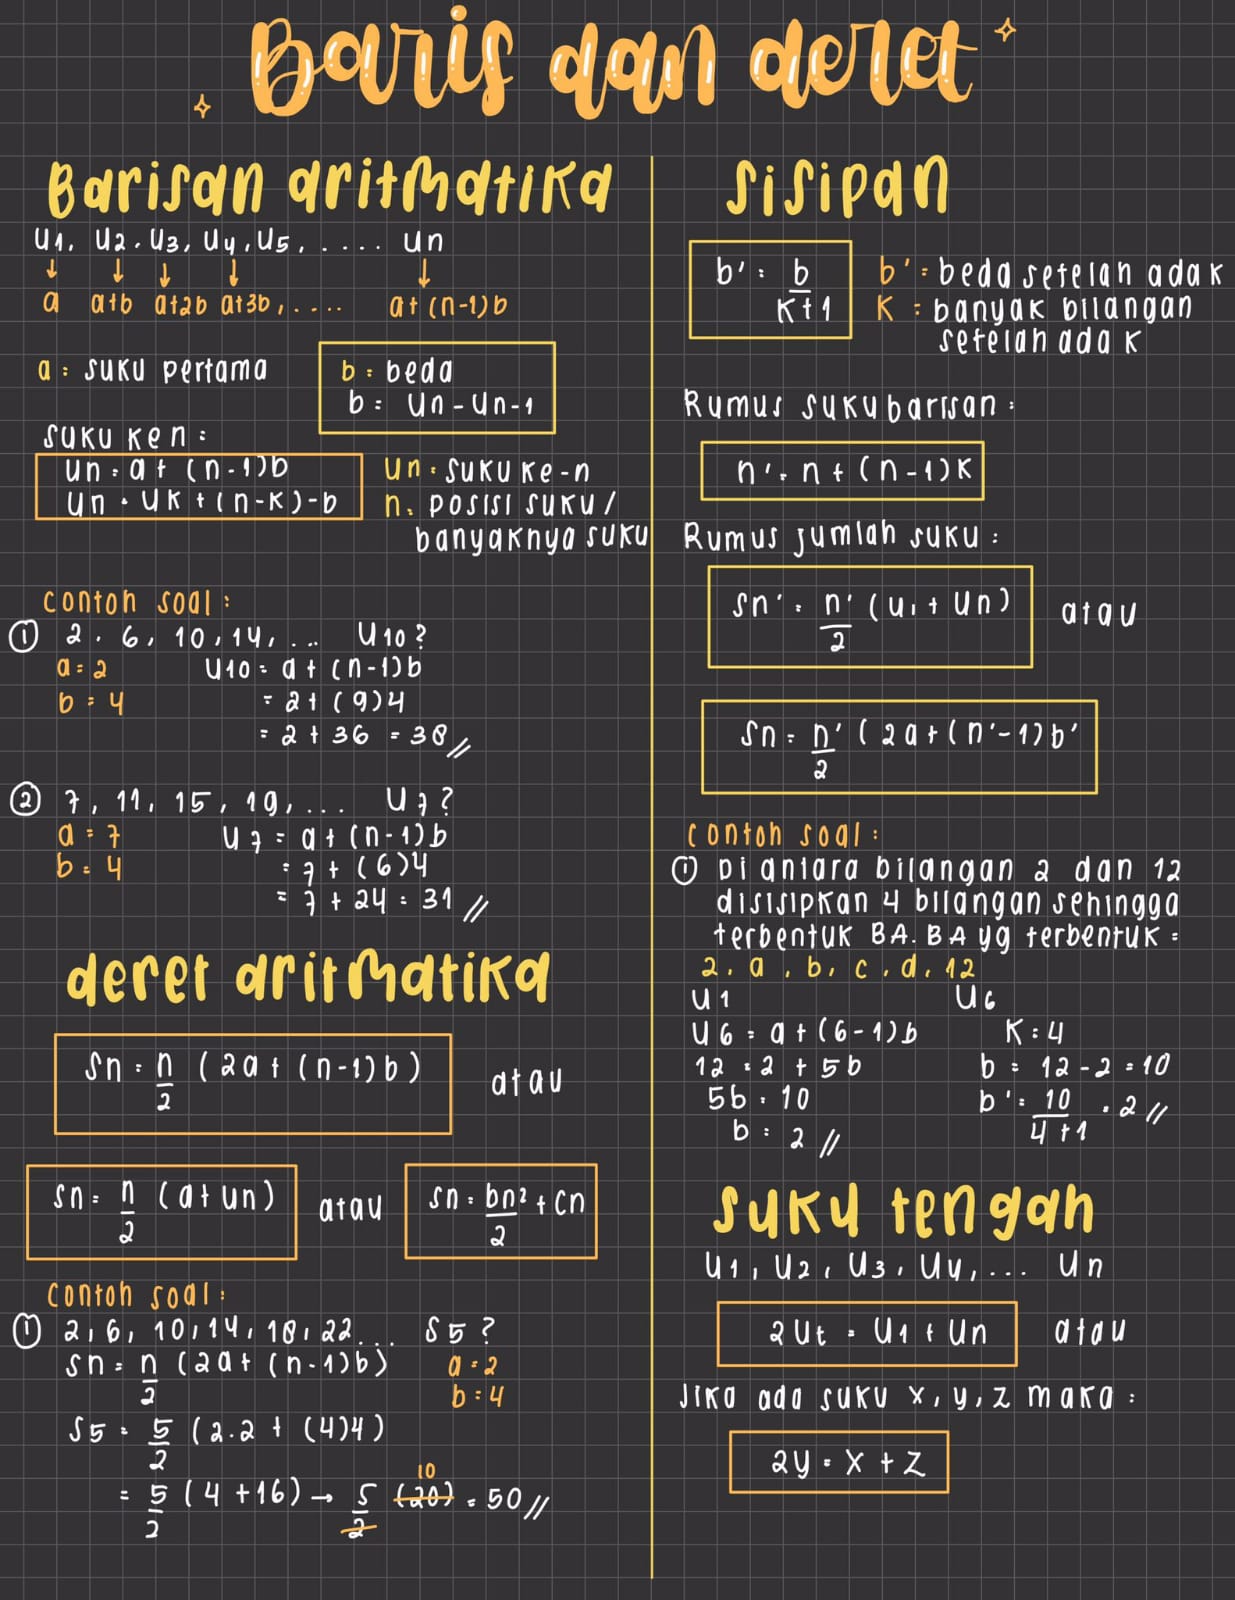 Baris dan deret
Barisan aritmatika
U1, U2, U3, U4, U5, .... Un
↓ ↓ ↓ ↓ ↓
a a+b a+2b a+3b, .... a+(n-1)b
a = suku pertama
b = beda
b = Un - Un-1
suku ke n =
Un = a + (n-1)b
Un = UK + (n-K)-b
Un = suku ke-n
n = posisi suku /
banyaknya suku
contoh soal :
① 2, 6, 10, 14, ... U10 ?
a = 2
b = 4
U10 = a + (n-1)b
= 2 + (9)4
= 2 + 36 = 38 //
② 7, 11, 15, 19, ... U7 ?
a = 7
b = 4
U7 = a + (n-1)b
= 7 + (6)4
= 7 + 24 = 31 //
deret aritmatika
Sn = n/2 (2a + (n-1)b)
atau
Sn = n/2 (a + Un)
atau
Sn = bn²/2 + cn
contoh soal :
① 2, 6, 10, 14, 18, 22... S5 ?
Sn = n/2 (2a + (n-1)b)
a = 2
b = 4
S5 = 5/2 (2.2 + (4)4)
= 5/2 (4 + 16) → 5/2 (20) = 50 //
10
sisipan
b' = b/K+1
b' = beda setelah ada K
K = banyak bilangan
setelah ada K
Rumus suku barisan :
n' = n + (n-1)K
Rumus jumlah suku :
Sn' = n'/2 (U1 + Un)
atau
Sn = n'/2 (2a + (n'-1)b'
contoh soal :
① Di antara bilangan 2 dan 12
disisipkan 4 bilangan sehingga
terbentuk BA. BA yg terbentuk =
2, a, b, c, d, 12
U1 U6
U6 = a + (6-1)b
12 = 2 + 5b
5b = 10
b = 2 //
K = 4
b = 12 - 2 = 10
b' = 10/4+1 = 2 //
suku tengah
U1, U2, U3, U4, ... Un
2Ut = U1 + Un
atau
Jika ada suku x, y, z maka :
2y = x + z